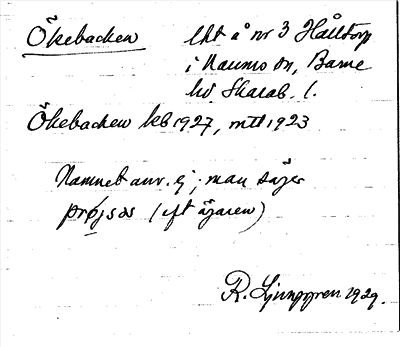 Ökebacken lht å nr 3 Hålltorp
i Naums sn, Barne
hd. Skarab. l.
Ökebacken kb 1927, mtl 1923
Namnet anv. ej; man säger
prøjsøs (eft ägaren)
R. Ljunggren 1929.